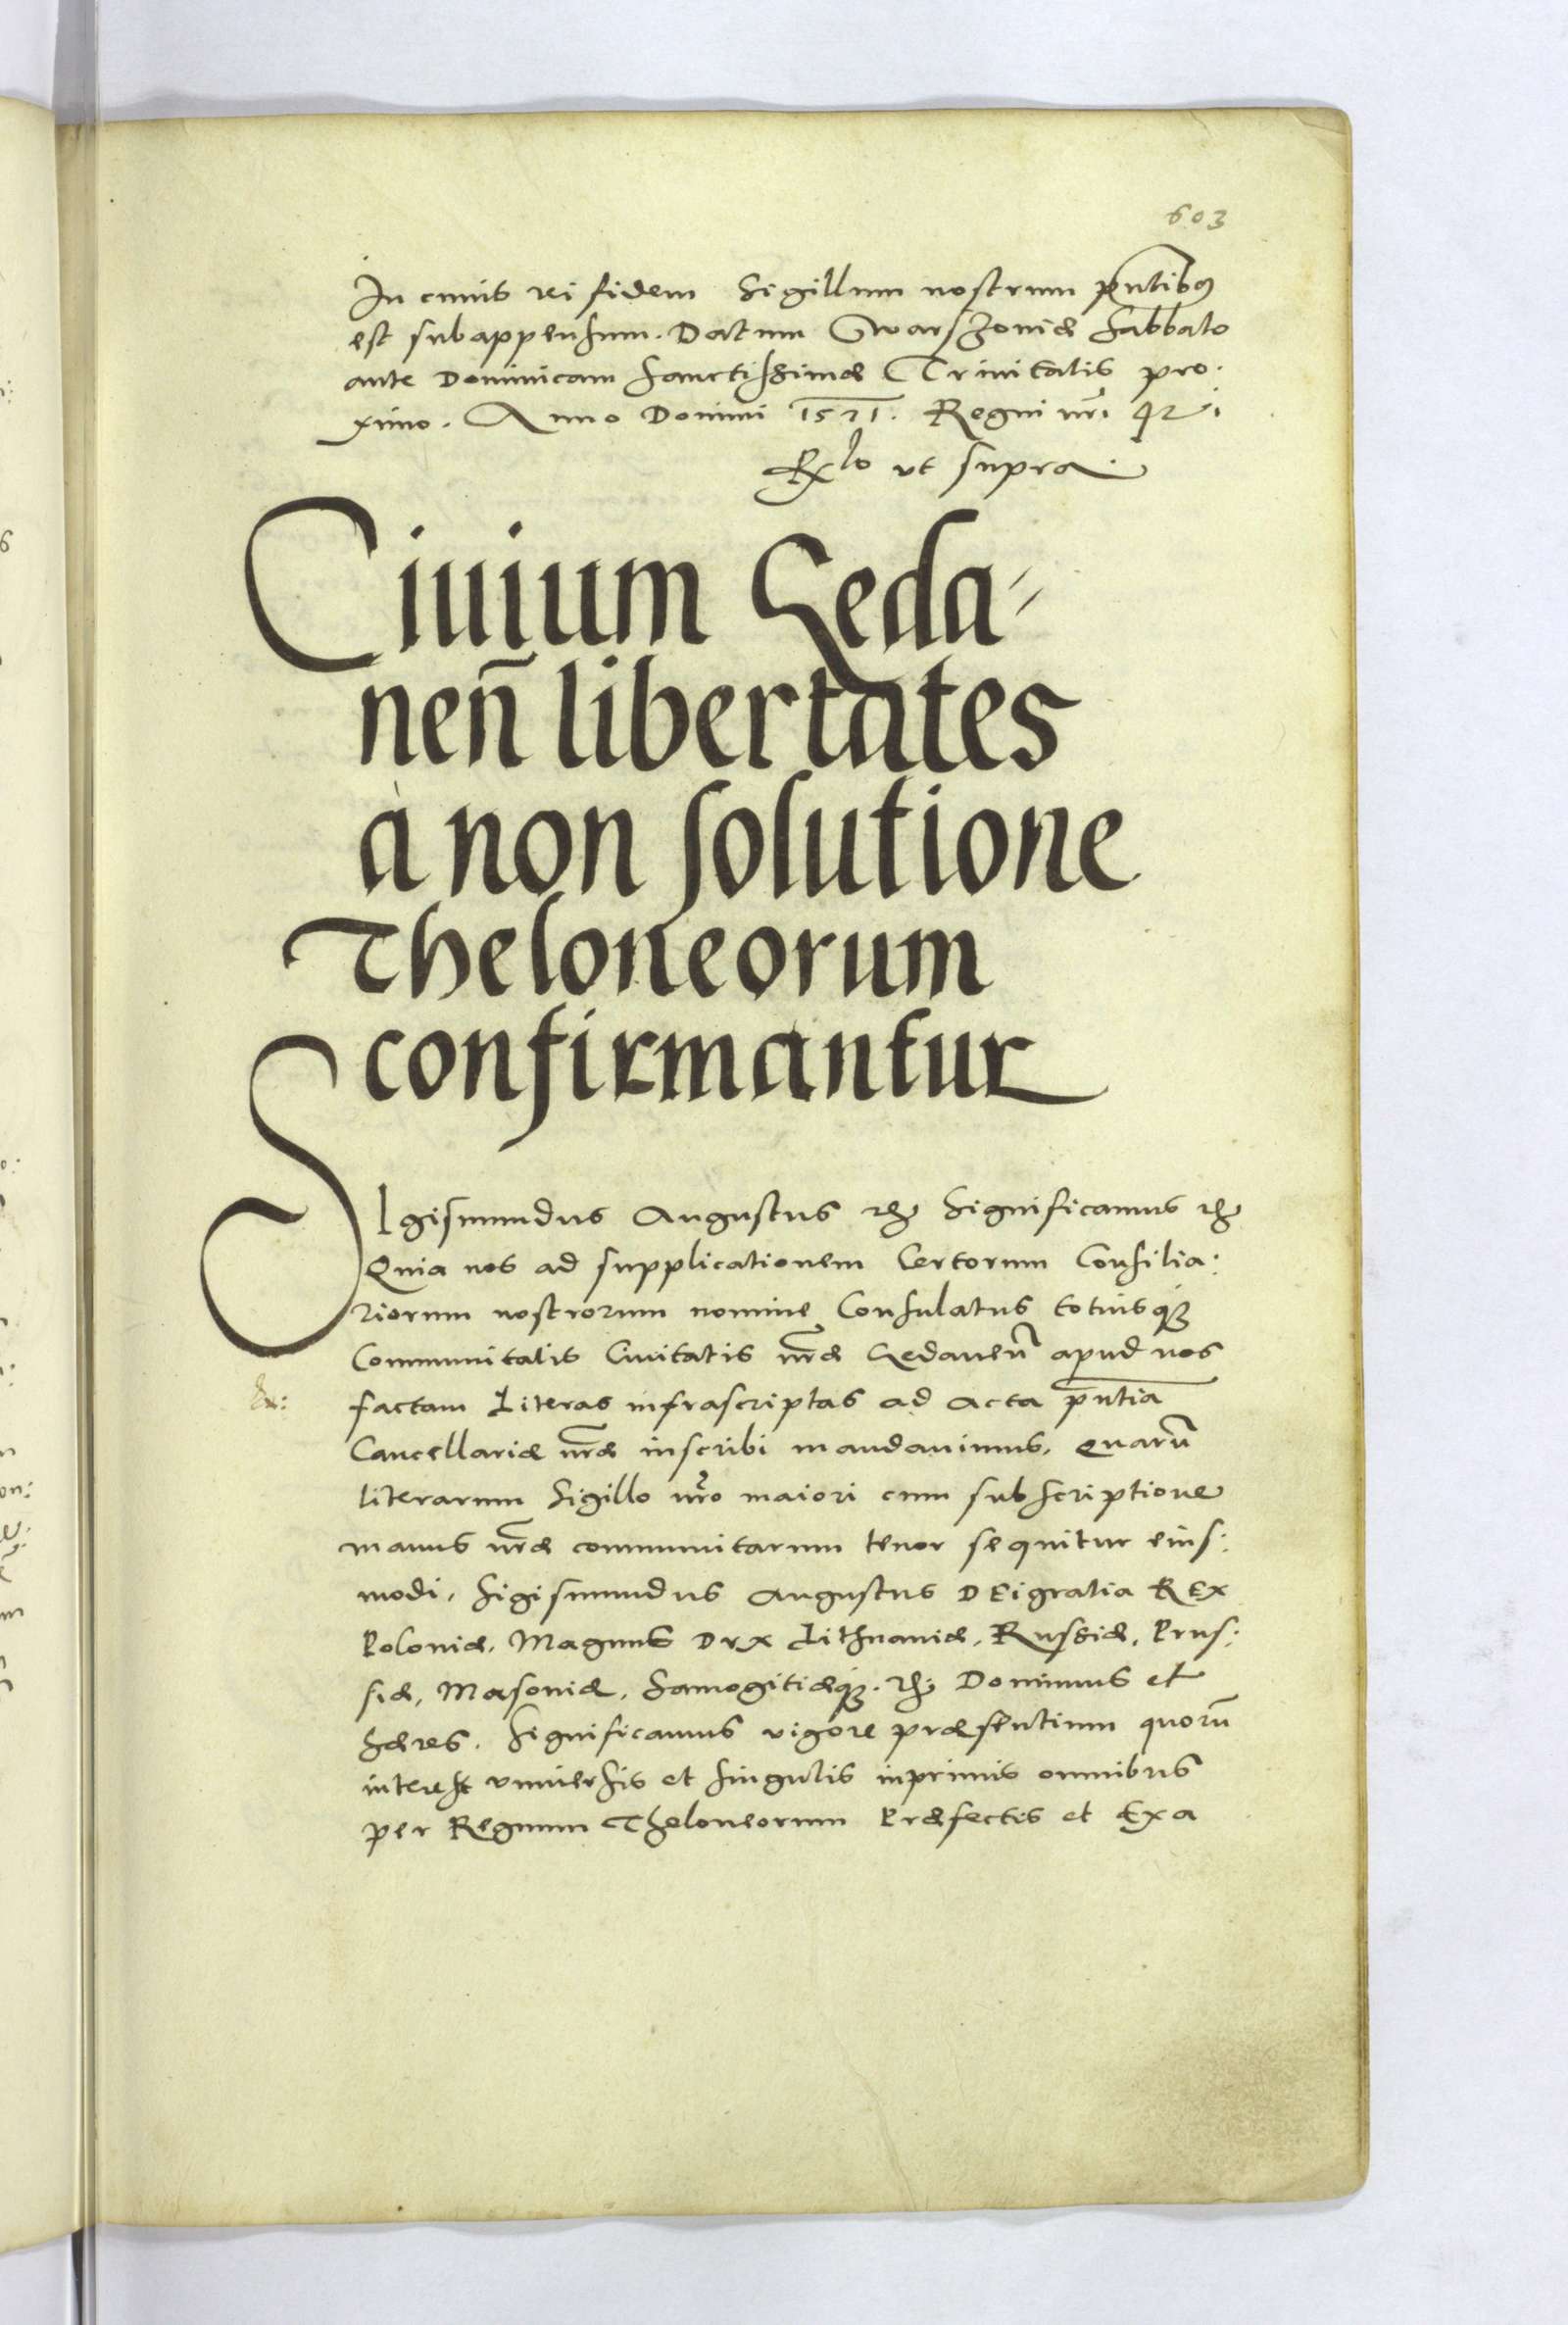 603
In cuius rei fidem Sigillum nostrum pñtibus
est subappensum. Datum Warszoviæ Sabbato
ante Dominicam Sanctissimæ Trinitatis pro:
ximo. Anno Domini 1571. Regni nr̃i 42.
Rlo ut supra.
Ciuium Geda-
neñ libertates
à non solutione
Theloneorum
confirmantur
SIgismundus Augustus etc Significamus etc
Quia nos ad supplicationem Certorum Consilia:
riorum nostrorum nomine Consulatus totiusq3
Communitatis Ciuitatis nr̃æ Gedaneñ apud nos
factam Literas infrascriptas ad Acta pñtia
Cancellariæ nr̃æ inscribi mandauimus, quarũ
literarum Sigillo nr̃o maiori cum subscriptione
manus nr̃æ communitarum tenor sequitur eius:
modi. Sigismundus Augustus DEi gratia REx
Poloniæ, Magnus Dux Lithuaniæ, Russiæ, Prus:
siæ, Masoviæ, Samogitiæq3. etc. Dominus et
Hæres. Significamus vigore præsentium quorũ
interest vniuersis et singulis inprimis omnibus
per Regnum Theloneorum Præfectis et Exa